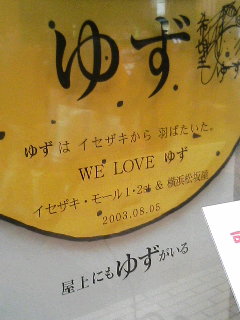 ゆず
ゆず は イセザキから 羽ばたいた。
WE LOVE ゆず
イセザキ・モール1・2st & 横浜松坂屋
2003.08.05
屋上にもゆずがいる